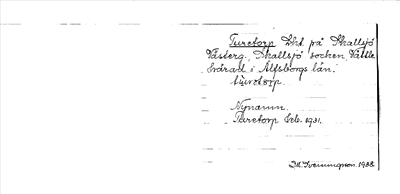 Turetorp Lht. på Skallsjö
Västerg., Skallsjö socken, Vättle
härad i Älfsborgs län.
tùretɔrp.
Nynamn.
Turetorp Eeb. 1931.
1938.